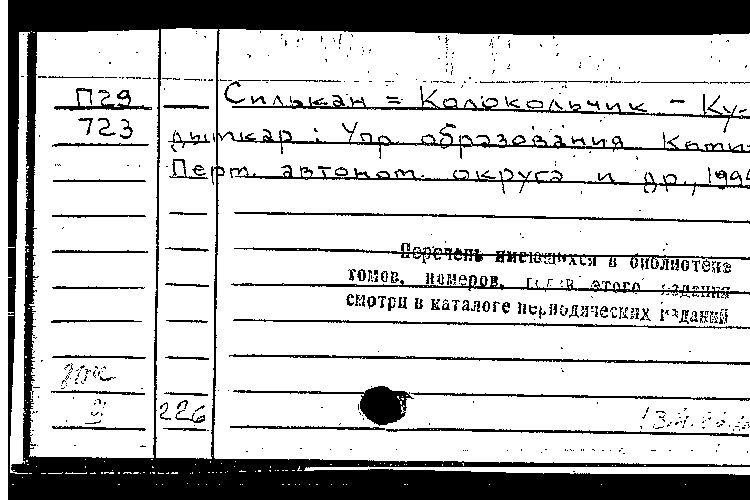 П29 Силькан = Колокольчик - Ку-
723 дымкар : Упр. образования Коми-
Перм. автоном. округа и др., 199
Перечень имеющихся в библиотеке
томов, номеров, годов этого издания
смотри в каталоге периодических изданий
226